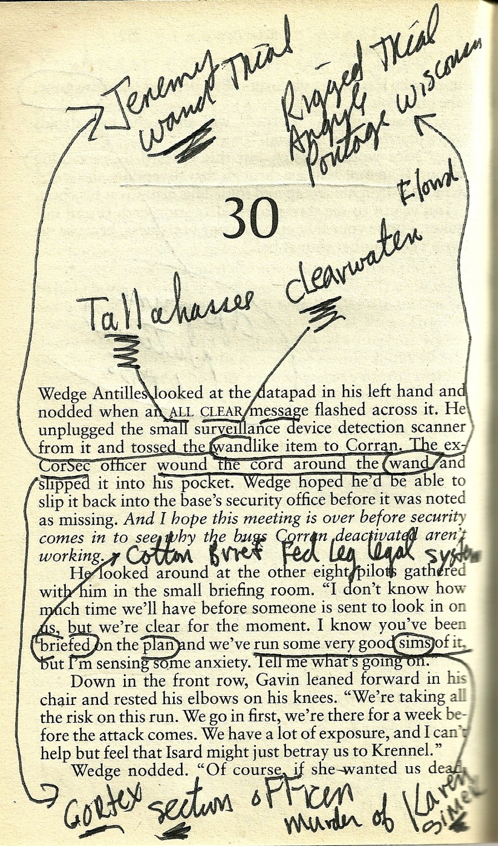 Jeremy
Wand Trial
Rigged Trial
Argyle
Portage Wisconsin
30
Tallahassee clearwater
Wedge Antilles looked at the datapad in his left hand and
nodded when an ALL CLEAR message flashed across it. He
unplugged the small surveillance device detection scanner
from it and tossed the wandlike item to Corran. The ex-
CorSec officer wound the cord around the wand and
slipped it into his pocket. Wedge hoped he'd be able to
slip it back into the base's security office before it was noted
as missing. And I hope this meeting is over before security
comes in to see why the bugs Corran deactivated aren't
working.
Cotton Brief Fed Leg legal system
He looked around at the other eight pilots gathered
with him in the small briefing room. "I don't know how
much time we'll have before someone is sent to look in on
us, but we're clear for the moment. I know you've been
briefed on the plan and we've run some very good sims of it,
but I'm sensing some anxiety. Tell me what's going on."
Down in the front row, Gavin leaned forward in his
chair and rested his elbows on his knees. "We're taking all
the risk on this run. We go in first, we're there for a week be-
fore the attack comes. We have a lot of exposure, and I can't
help but feel that Isard might just betray us to Krennel."
Wedge nodded. "Of course, if she wanted us dead,
Cortex section officer
murder of Karen